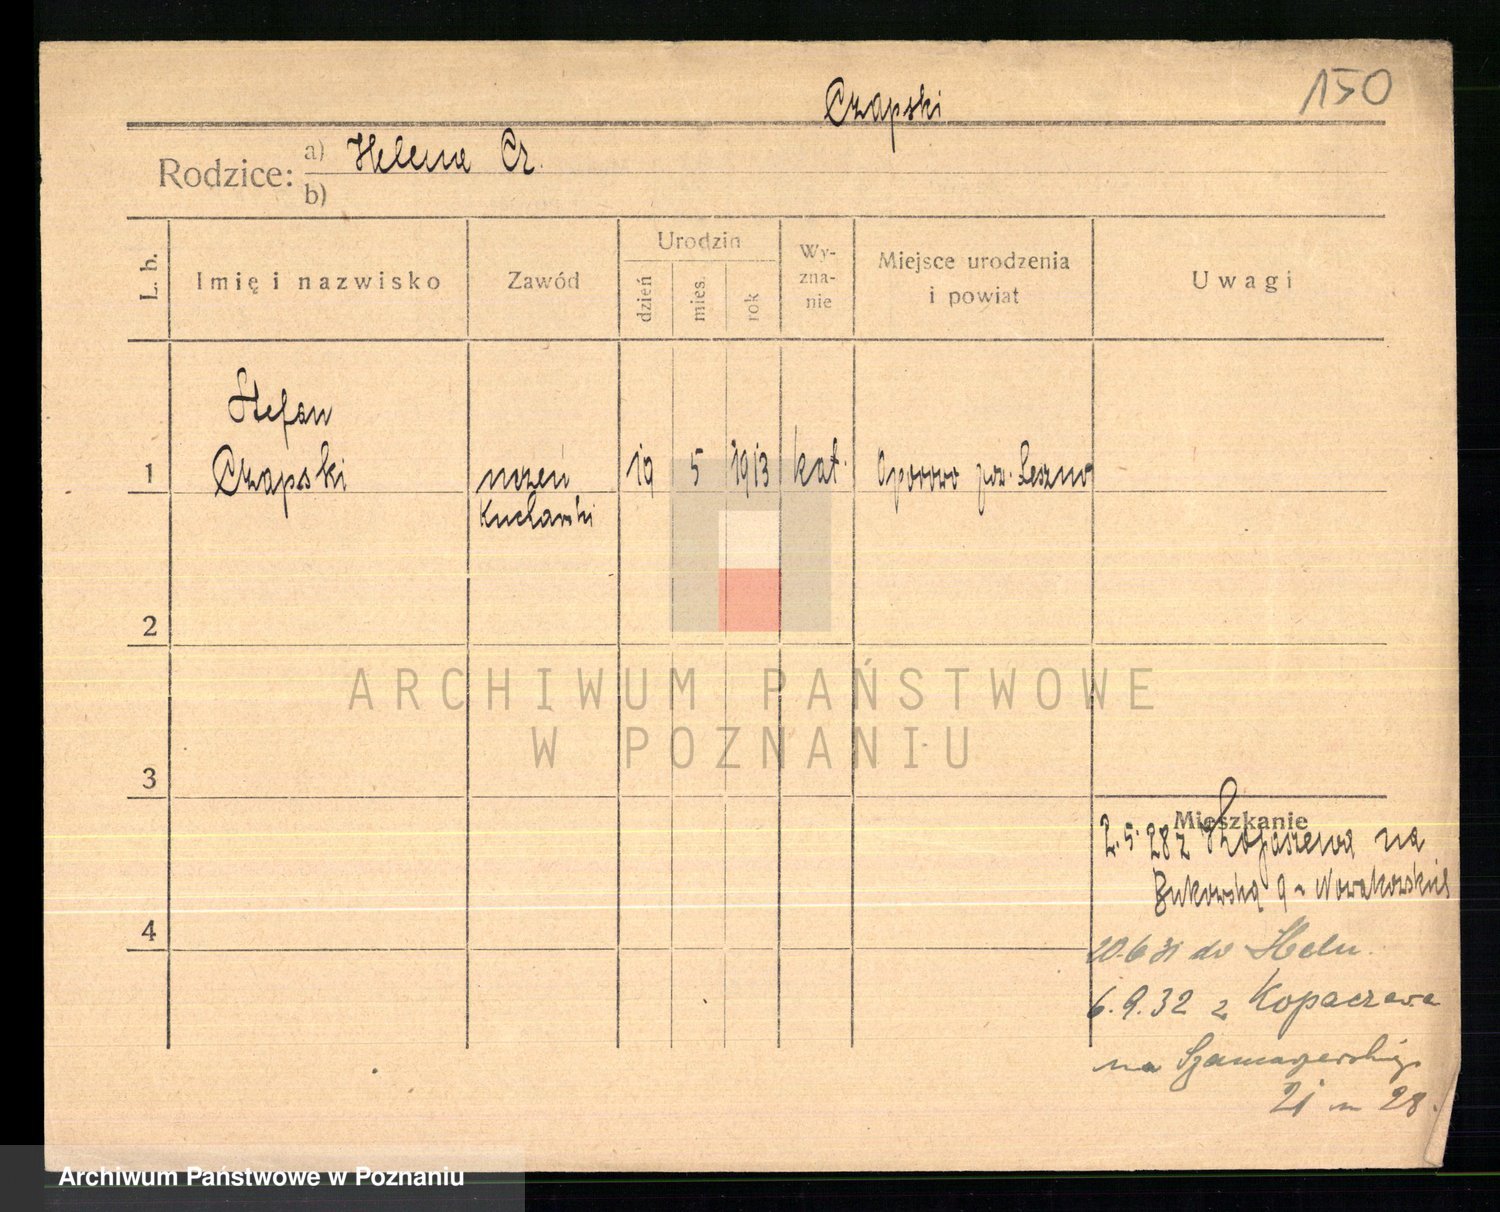 150
Czapski
Rodzice: a) Helena Cz.
b)
L. b.
Imię i nazwisko
Zawód
Urodzin
dzień
mies.
rok
Wy-
zna-
nie
Miejsce urodzenia
i powiat
Uwagi
1
Stefan
Czapski
uczeń
kucharski
19
5
1913
kat.
Oporowo pow. Leszno
2
3
4
Mieszkanie
2.5.28 z na
Bukowską 9 u
20.6.31 do Helu.
6.9.32 z Kopaczewa
na
21 m 28.
ARCHIWUM PAŃSTWOWE
W POZNANIU
Archiwum Państwowe w Poznaniu